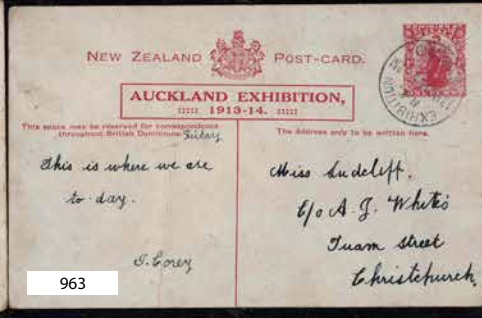 NEW ZEALAND POST-CARD.
AUCKLAND EXHIBITION,
::::: 1913-14. :::::
This space may be reserved for correspondence
throughout British Dominions.
The Address only to be written here.
This is where we are
to-day.
Miss Sudcliff.
C/o A. J. White's
Tuam Street
Christchurch,
963